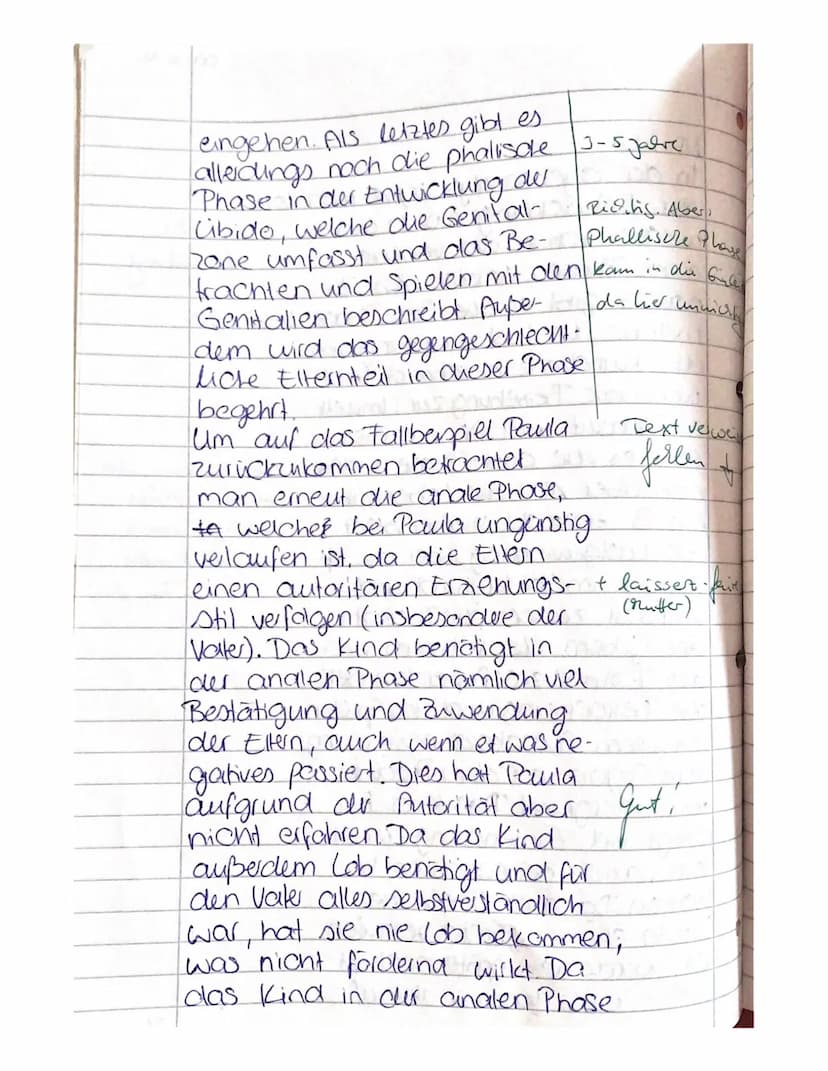 eingehen. Als letztes gibt es
allerdings noch die phalische
Phase in der Entwicklung der
Libido, welche die Genital-
zone umfasst und das Be-
trachten und Spielen mit den
Genitalien beschreibt. Außer-
dem wird das gegengeschlecht-
liche Elternteil in dieser Phase
begehrt.
Um auf das Fallbeispiel Paula
zurückzukommen betrachtet
man erneut die anale Phase,
welche bei Paula ungünstig
verlaufen ist, da die Eltern
einen autoritären Erziehungs-
stil verfolgen (insbesondere der
Vater). Das Kind benötigt in
der analen Phase nämlich viel
Bestätigung und Zuwendung
der Eltern, auch wenn etwas ne-
gatives passiert. Dies hat Paula
aufgrund der Autorität aber
nicht erfahren. Da das Kind
außerdem Lob benötigt und für
den Vater alles selbstverständlich
war, hat sie nie Lob bekommen,
was nicht fördernd wirkt. Da
das Kind in der analen Phase
3-5 Jahre
Richtig. Aber:
Phallische Phase
kam in die
da hier
Text
fehlen
+ laissez-faire
(Mutter)
Gut!